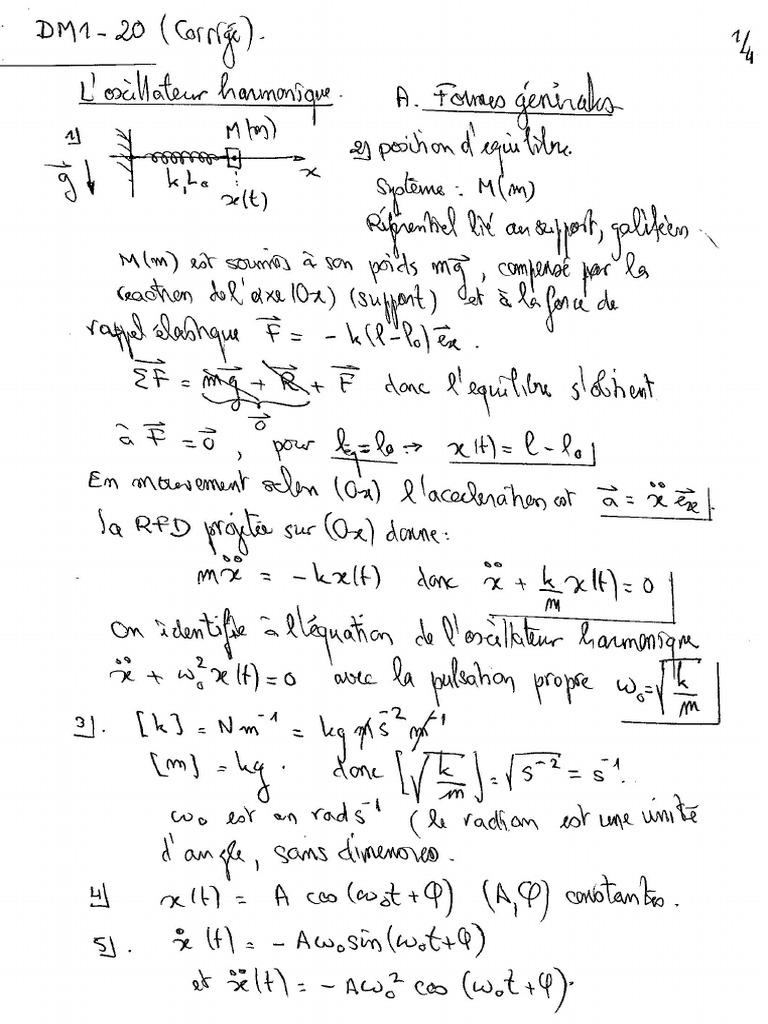 DM1-20 (Corrigé).
1/4
L'oscillateur harmonique. A. Formes générales
1) M(m)
g⃗ k, L₀ x
x(t)
2) position d'equilibre.
Système : M(m)
Référentiel lié au support, galiléen.
M(m) est soumis à son poids mg⃗, compensé par la
reaction de l'axe (Ox) (support) et à la force de
rappel élastique F⃗ = -k(l-l₀)e⃗x.
ΣF⃗ = mg⃗ + R⃗ + F⃗ donc l'equilibre s'obtient
0⃗
à F⃗ = 0⃗, pour léq = l₀ → x(t) = l - l₀
En mouvement selon (Ox) l'acceleration est a⃗ = ẍ e⃗x
la RFD projetée sur (Ox) donne :
mẍ = -kx(t) donc ẍ + k/m x(t) = 0
On identifie à l'équation de l'oscillateur harmonique
ẍ + ω₀² x(t) = 0 avec la pulsation propre ω₀ = √(k/m)
3). [k] = N m⁻¹ = kg m s⁻² m⁻¹
[m] = kg. donc [√(k/m)] = √(s⁻²) = s⁻¹.
ω₀ est en rad s⁻¹ (le radian est une unité
d'angle, sans dimension.
4) x(t) = A cos(ω₀t + φ) (A, φ) constantes.
5). ẋ(t) = -Aω₀ sin(ω₀t + φ)
et ẍ(t) = -Aω₀² cos(ω₀t + φ).